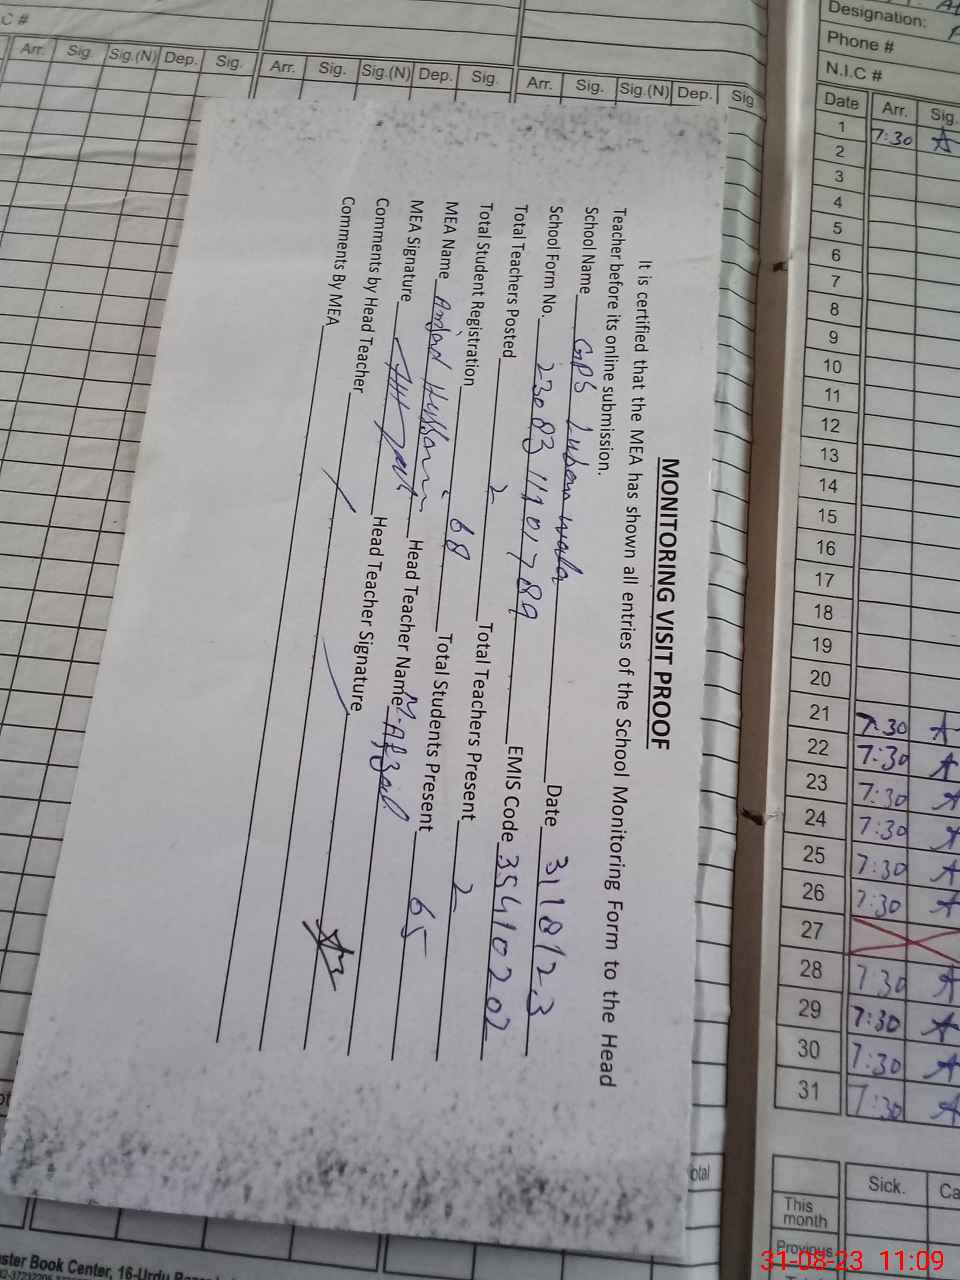 C #
Arr. Sig. Sig.(N) Dep. Sig. Arr. Sig. Sig.(N) Dep. Sig. Arr. Sig. Sig.(N) Dep. Sig
MONITORING VISIT PROOF
It is certified that the MEA has shown all entries of the School Monitoring Form to the Head
Teacher before its online submission.
School Name GPS wala Date 31/8/23
School Form No. 2308311101789 EMIS Code 35410202
Total Teachers Posted 2 Total Teachers Present 2
Total Student Registration 68 Total Students Present 65
MEA Name Amjad Hussain Head Teacher Name M. Afzal
MEA Signature Head Teacher Signature
Comments by Head Teacher
Comments By MEA
Designation:
Phone #
N.I.C #
Date Arr. Sig.
1 7:30
2
3
4
5
6
7
8
9
10
11
12
13
14
15
16
17
18
19
20
21 7:30
22 7:30
23 7:30
24 7:30
25 7:30
26 7:30
27
28 7:30
29 7:30
30 7:30
31 7:30
Sick. Ca
This month
Previous
otal
ster Book Center, 16-Urdu
31-08-23 11:09